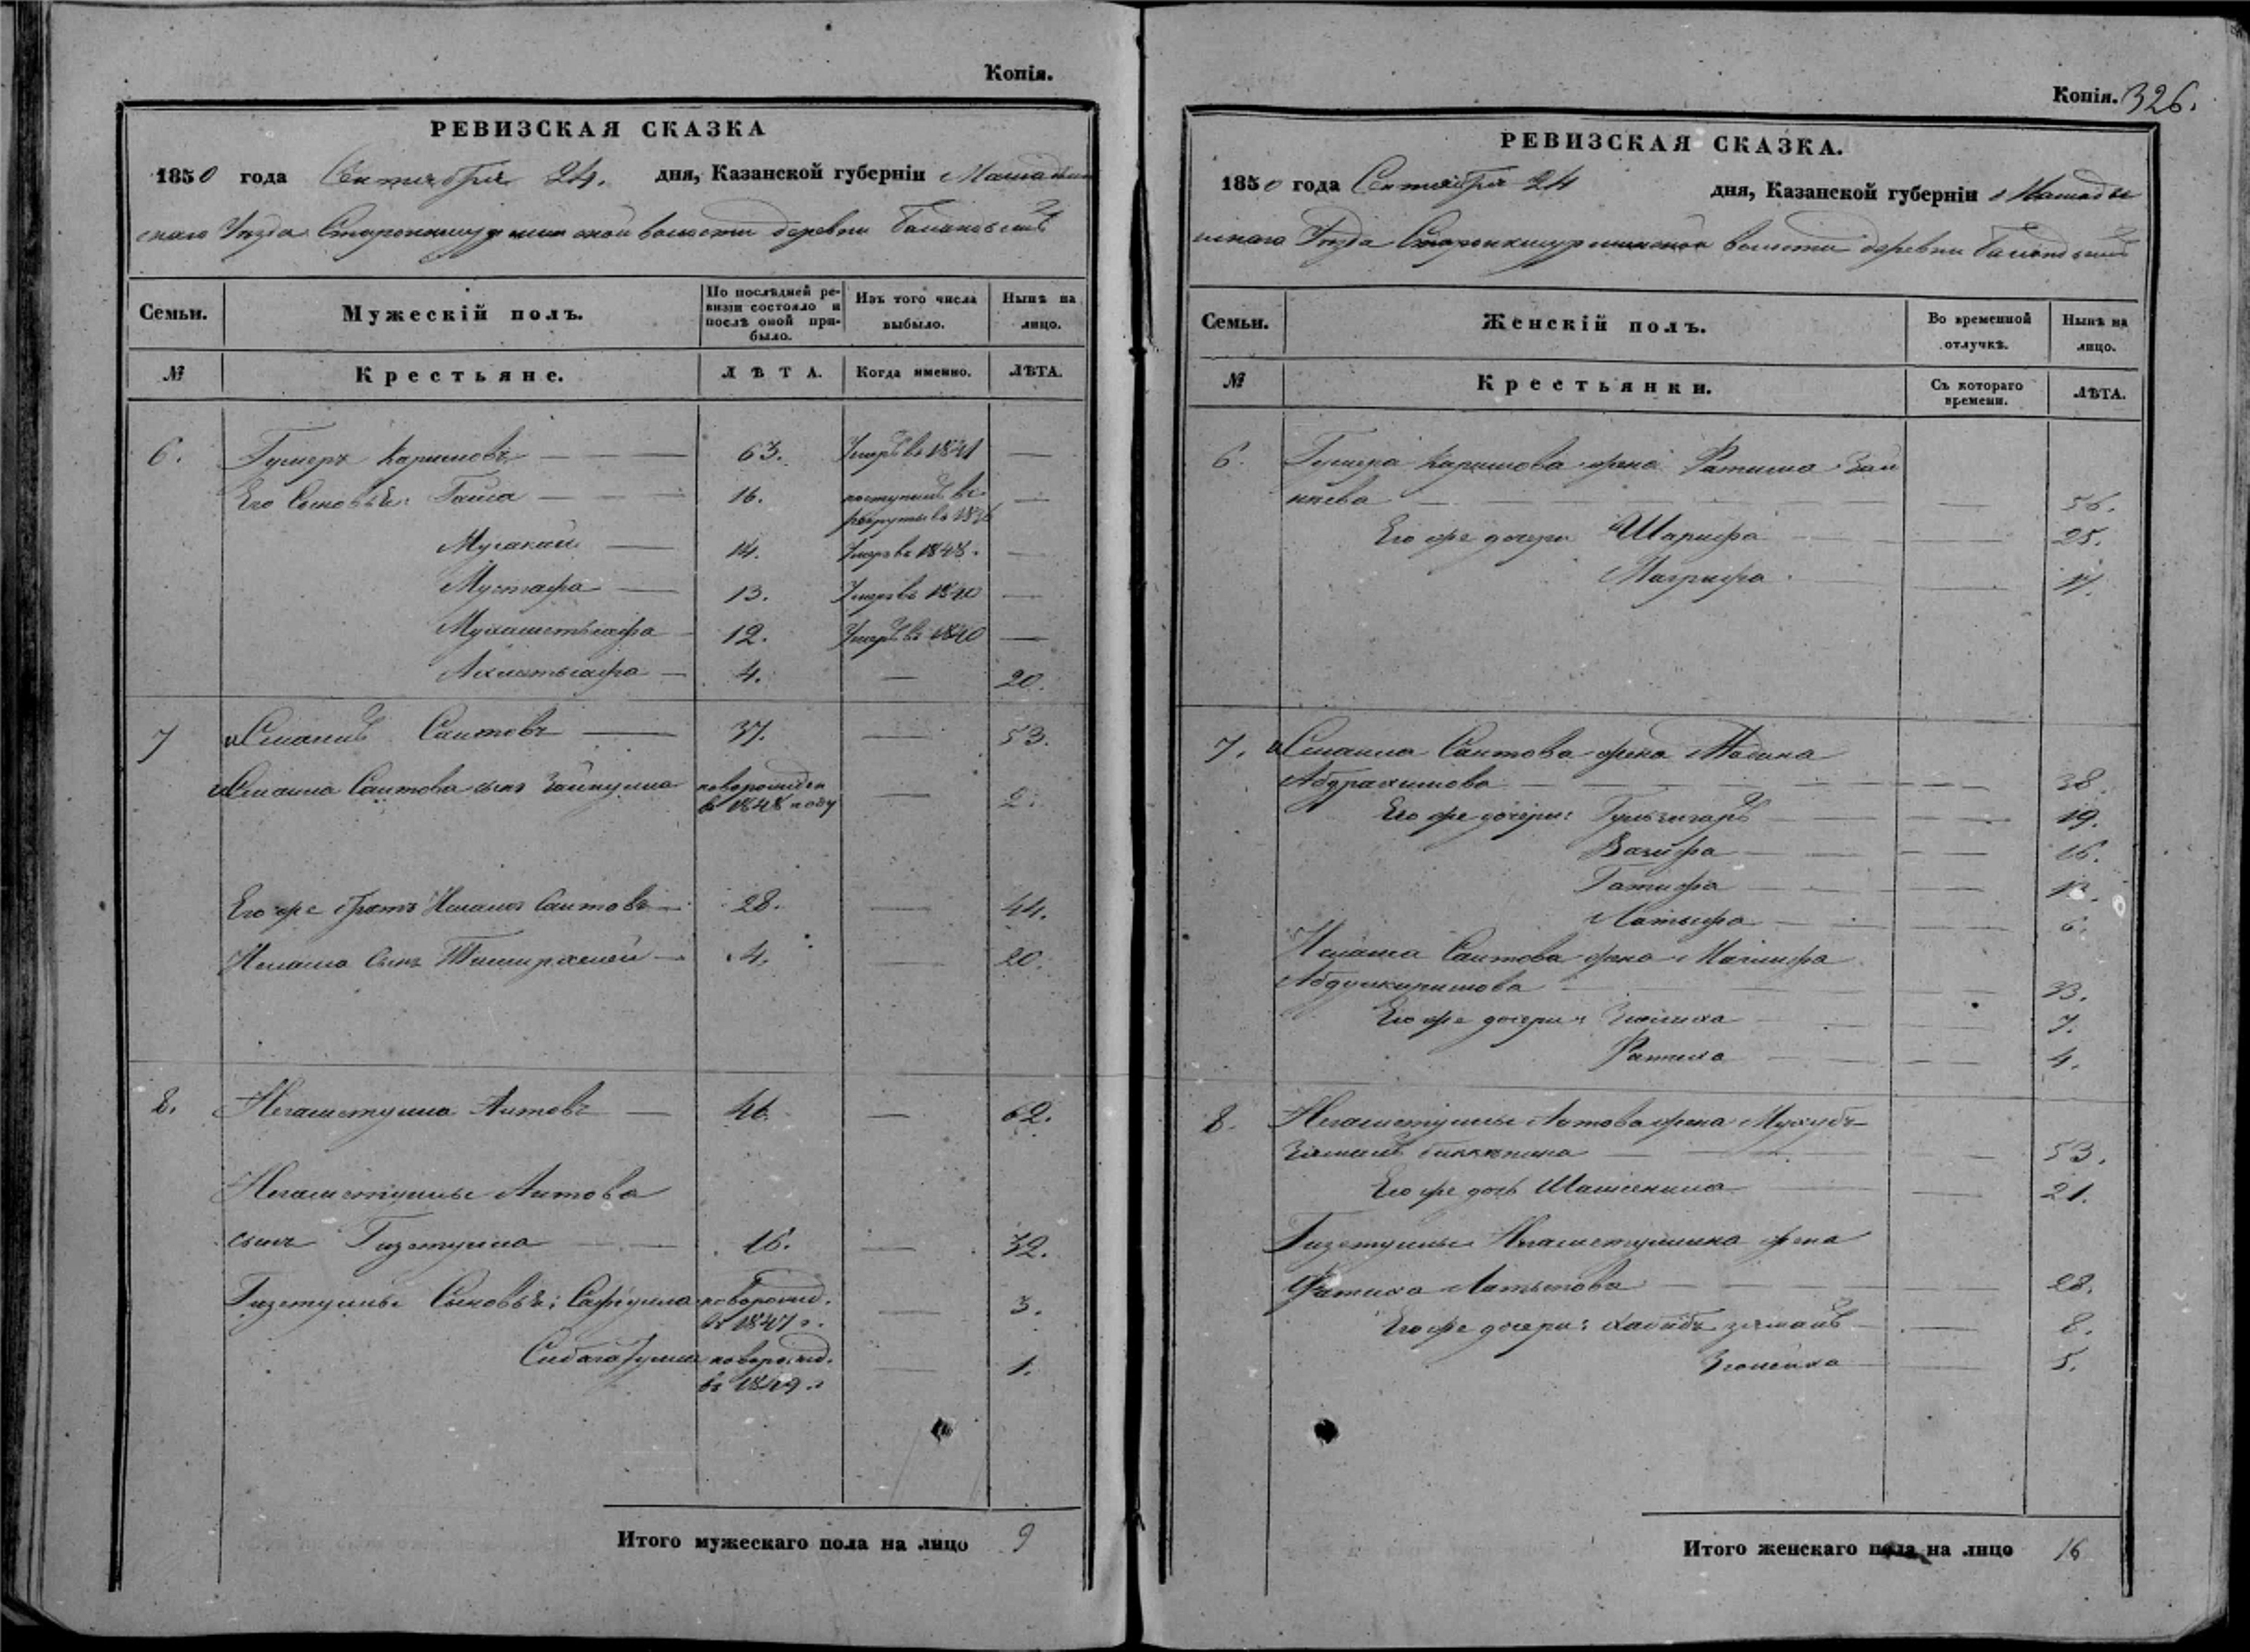 Копія.
РЕВИЗСКАЯ СКАЗКА
1850 года Сентября 24. дня, Казанской губерніи Мамадыш
скаго Уѣзда Старокишурминской волости деревни
Семьи. Мужескій полъ. По послѣдней ревизіи состояло и послѣ оной прибыло. Изъ того числа выбыло. Нынѣ на лицо.
№ Крестьяне. ЛѢТА. Когда именно. ЛѢТА.
6. Гумеръ Каримовъ — 63. Умеръ въ 1841 —
Его Сыновья: Гайса — 16. поступилъ въ —
рекруты въ
14. Умеръ въ 1848. —
Мустафа — 13. Умеръ въ 1840 —
Мухаметьгафа — 12. Умеръ въ 1840 —
Ахметьгафа — 4. — 20.
7 Исмаилъ Саитовъ — 37. — 53.
Исмаила Саитова сынъ Зайнулла новорожден — 2.
въ 1848 году
Его же братъ Саитовъ — 28. — 44.
сынъ — 4. — 20.
8. Негаметулла Аитовъ — 46. — 62.
Негаметуллы Аитова
сынъ Гизетулла — 16. — 32.
Гизетуллы Сыновья: Сафиулла новорожд. — 3.
въ 1847 г.
новорожд. — 1.
въ 1849 г.
Итого мужескаго пола на лицо 9
Копія. 326.
РЕВИЗСКАЯ СКАЗКА.
1850 года Сентября 24 дня, Казанской губерніи Мамадыш
скаго Уѣзда Старокишурминской волости деревни
Семьи. Женскій полъ. Во временной отлучкѣ. Нынѣ на лицо.
№ Крестьянки. Съ котораго времени. ЛѢТА.
6. Гумера Каримова жена Фатима
— — 56.
Его же дочери Шарифа — 25.
Магрифа — 17.
7. Исмаила Саитова жена Мадина
Абдрахимова — — 38.
Его же дочери: — 19.
Вагифа — 16.
Гатифа — 13.
Латыфа — 6.
Саитова жена
Абдулкаримова — 33.
Его же дочери: — 7.
Фатиха — 4.
8. Негаметуллы Аитова жена
— — 53.
Его же дочь — 21.
Гизетуллы Негаметуллина жена
Фатиха Латыпова — 28.
Его же дочери: — 8.
— 5.
Итого женскаго пола на лицо 16